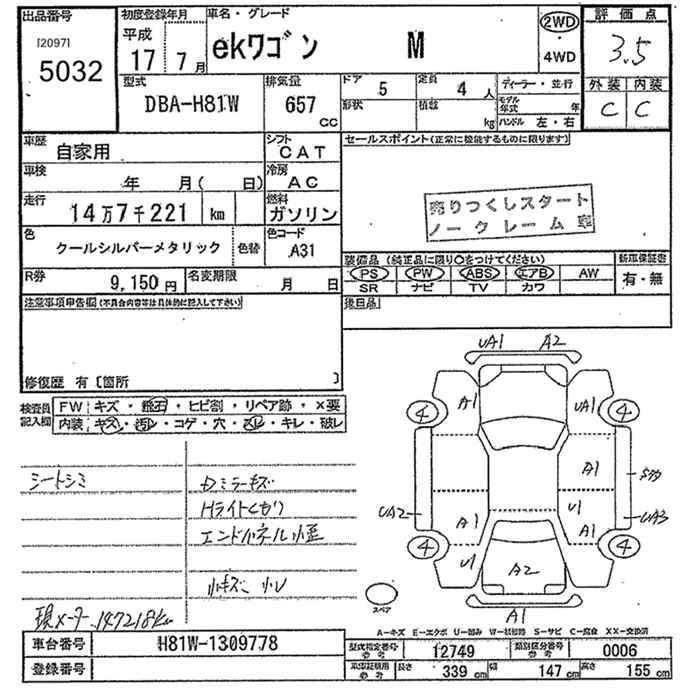 出品番号
[2097]
5032
初度登録年月
平成
17 年 7 月
車名・グレード
ekワゴン M
2WD
4WD
評価点
3.5
外装 内装
C C
型式
DBA-H81W
排気量
657
CC
ドア 5
形状
定員 4 人
積載 kg
ディーラー・並行
モデル年式 年
ハンドル 左・右
車歴
自家用
シフト
CAT
セールスポイント(正常に機能するものに限ります)
売りつくしスタート
ノークレーム
車検
年 月( 日)
冷房
AC
走行
14万7千221 km
燃料
ガソリン
色
クールシルバーメタリック
色替
色コード
A31
装備品(純正品に限り○をつけてください)
PS PW ABS エアB AW
SR ナビ TV カワ
新車保証書
有・無
R券
9,150円
名変期限
月 日
後日品
注意事項申告欄(不具合内容等は具体的に記入して下さい)
修復歴 有〔箇所 〕
検査員記入欄
FW キズ・飛石・ヒビ割・リペア跡・×要
内装 キズ・汚レ・コゲ・穴・スレ・キレ・破レ
シートシミ
Dミラーキズ
Hライトくもり
エンドパネル小歪
小キズ 小凹
現メーター 147218km
UA1 A2
A1 UA1
4 4
A1
UA2 UA3
A1 U1 A1
4 4
U1
A2
A1
スペア
A-キズ E-エクボ U-凹み W-補修跡 S-サビ C-腐食 XX-交換済
車台番号 H81W-1309778
登録番号
型式指定番号 参考 12749
類別区分番号 参考 0006
車体証明用 参考 長さ 339 cm 幅 147 cm 高さ 155 cm